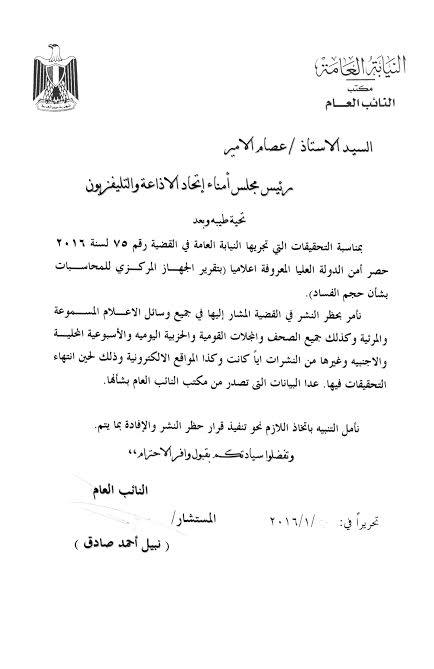 النيابة العامة
مكتب
النائب العام
السيد الاستاذ / عصام الامير
رئيس مجلس أمناء إتحاد الاذاعة والتليفزيون
تحية طيبه وبعد
بمناسبة التحقيقات التي تجريها النيابة العامة في القضية رقم ٧٥ لسنة ٢٠١٦
حصر أمن الدولة العليا المعروفة اعلاميا (بتقرير الجهاز المركزي للمحاسبات
بشأن حجم الفساد).
نأمر بحظر النشر في القضية المشار إليها في جميع وسائل الاعلام المسموعة
والمرئية وكذلك جميع الصحف والمجلات القومية والحزبية اليوميه والأسبوعية المحلية
والاجنبيه وغيرها من النشرات اياً كانت وكذا المواقع الالكترونية وذلك لحين انتهاء
التحقيقات فيها. عدا البيانات التى تصدر من مكتب النائب العام بشأنها.
نأمل التنبيه باتخاذ اللازم نحو تنفيذ قرار حظر النشر والإفادة بما يتم.
وتفضلوا سيادتكم بقبول وافر الاحترام،،
النائب العام
المستشار/
تحريراً في: / ٢٠١٦/١
( نبيل أحمد صادق )